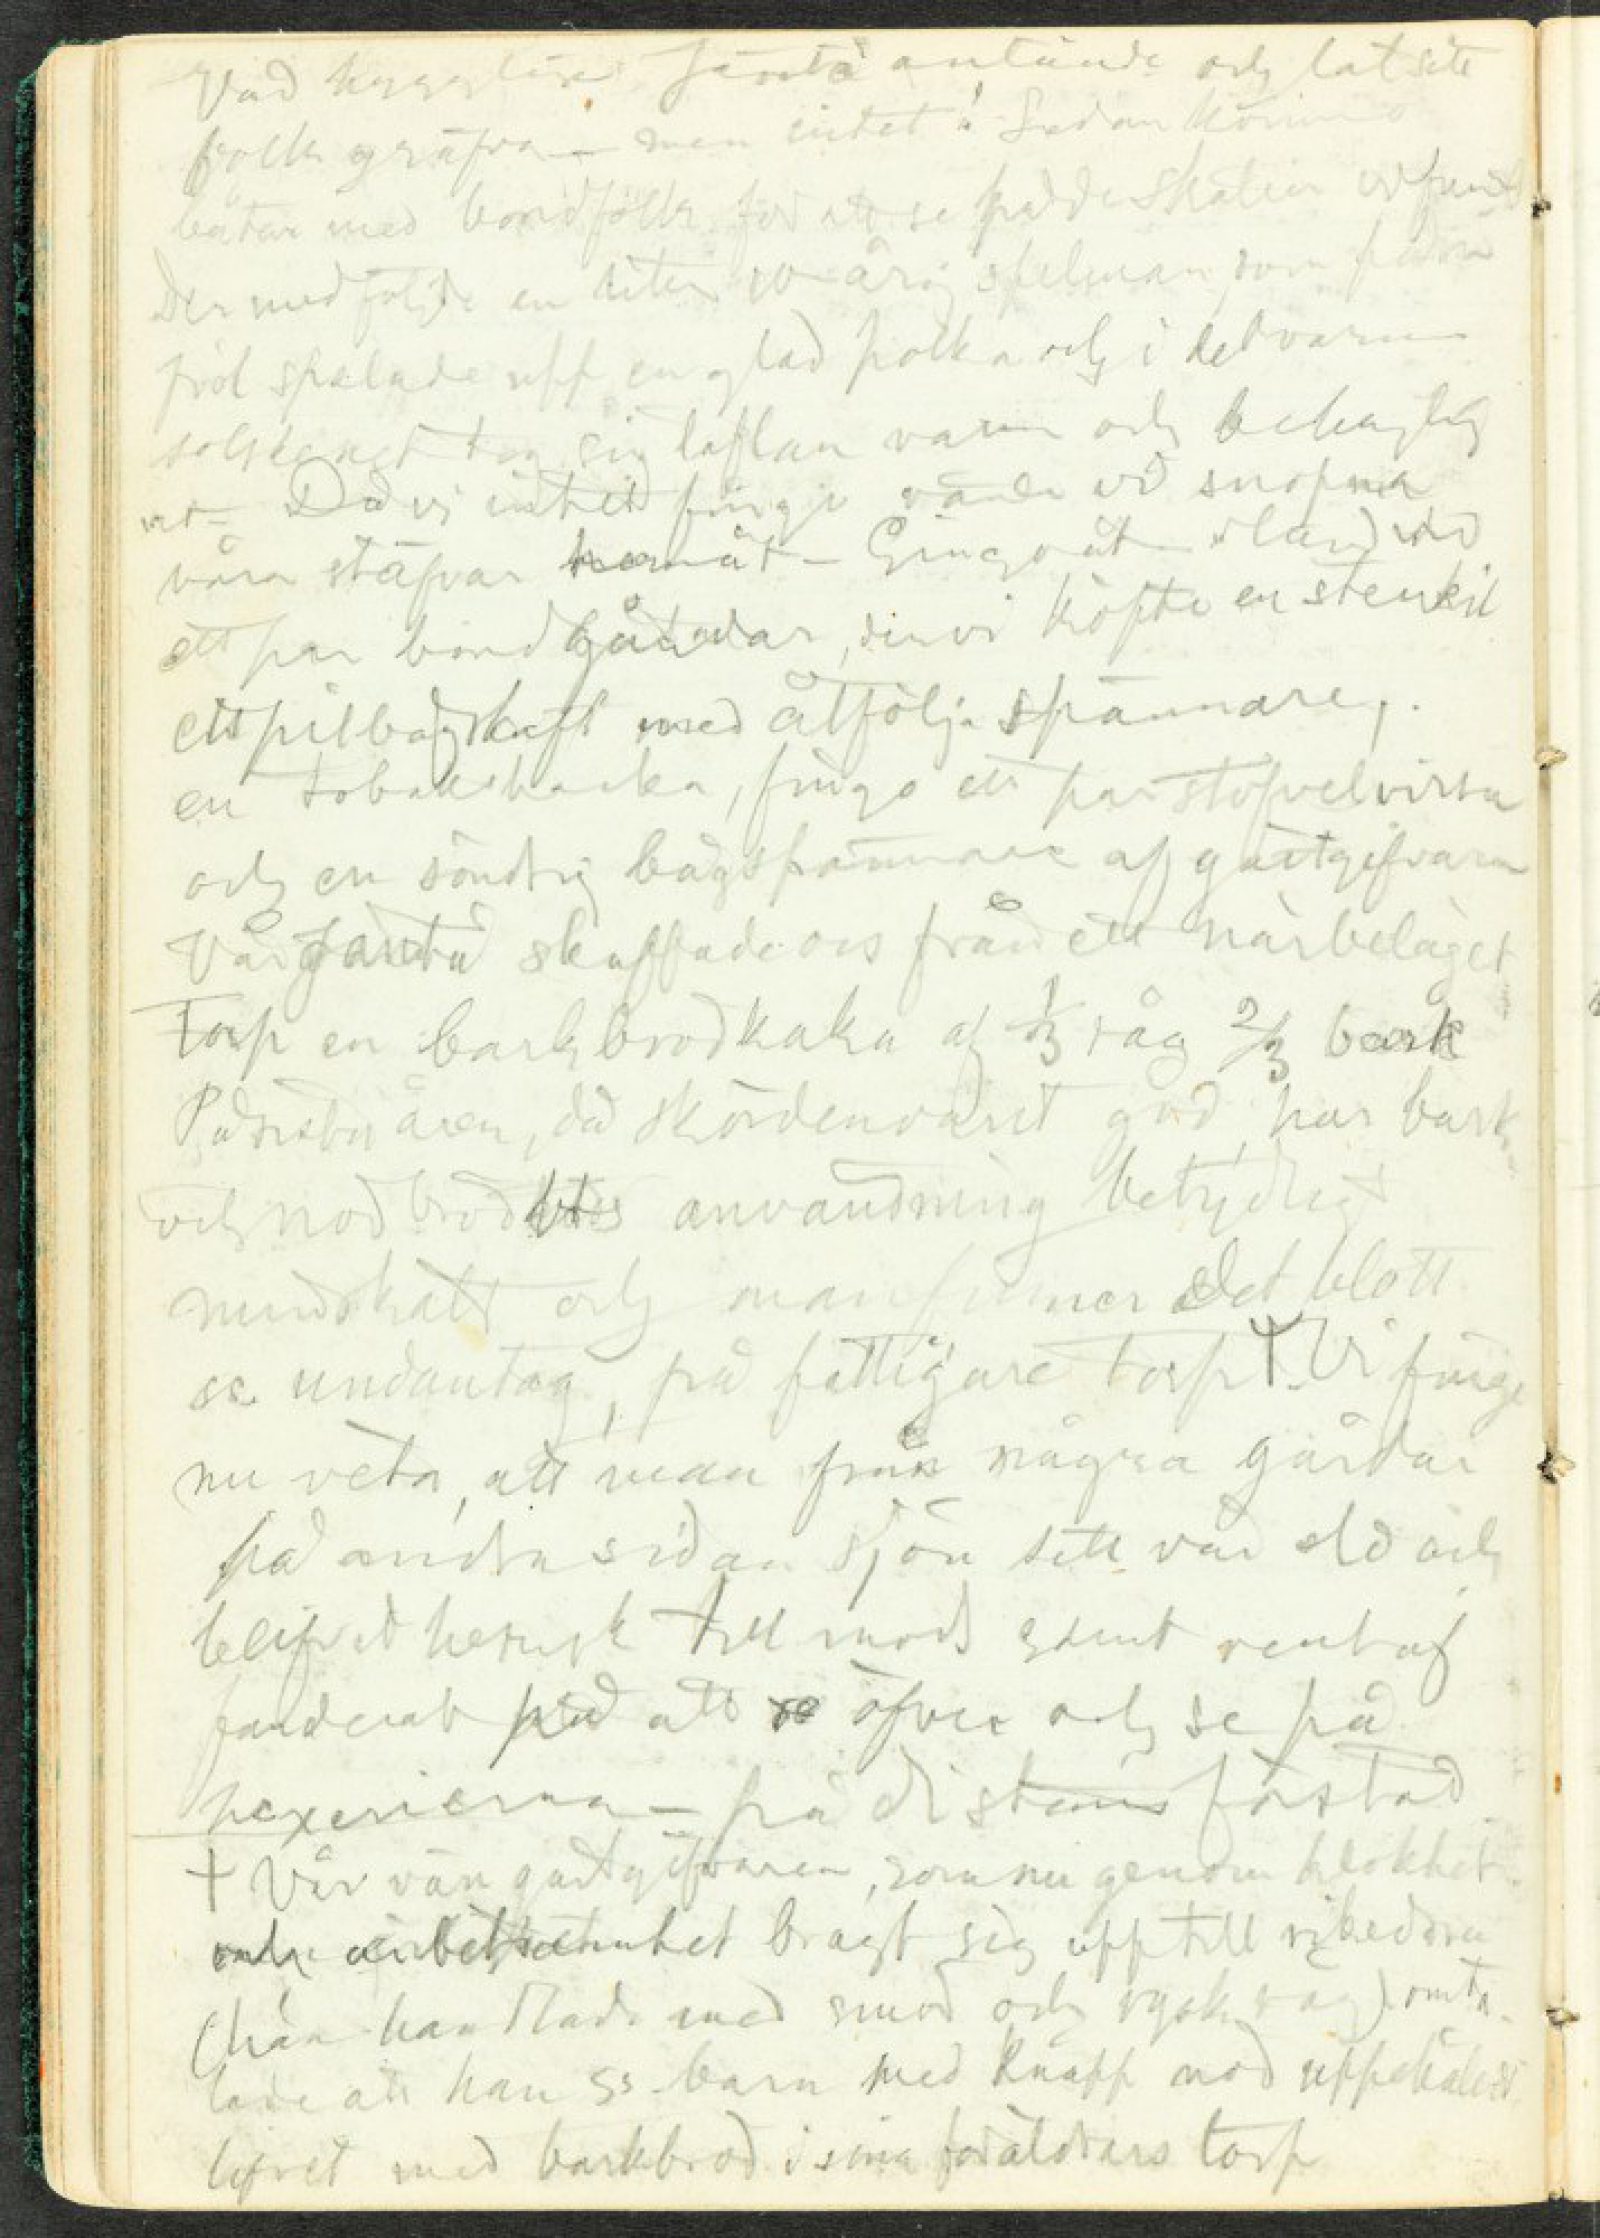 folk gräfva — men intet! Sedan kommo
båtar med bondfolk för att se på de skatter vi funnit
Der medföljde en liten 10 årig spelman, som på sin
fiol spelade upp en glad polka och i det varma
solskenet tog sig taflan varm och behaglig
ut — Då vi intet fingo vände vi snopna
våra stäfvar hemåt — Gingo åt land vid
ett par bondgårdar, der vi köpte en stenkil
ett pilbågskaft med åtfölja spännare,
en tobakshacka, fingo ett par stöfvelvirka
och en söndrig bågspännare af gästgifvaren
Vår Jäntå skaffade oss från ett närbeläget
torp en barkbrödkaka af 1/3 råg 2/3 bark
På sista åren, då skörden varit god, har bark
och nödbrödets användning betydligt
minskats och man finner det blott
ss. undantag, på fattigare torp †. Vi fingo
nu veta, att man från några gårdar
på andra sidan sjön sett vår eld och
blifvit hemsk till mods samt rent af
funderat på att ro öfver och se på
hexerierna — på distans förstås
† Vår vän gästgifvaren, som nu genom klokhet
och arbetsamhet bragt sig upp till rikedom
(han handlade med smör och rysk råg) omta-
lade att han ss. barn med knapp nöd uppehållit
lifvet med barkbröd i sina föräldrars torp